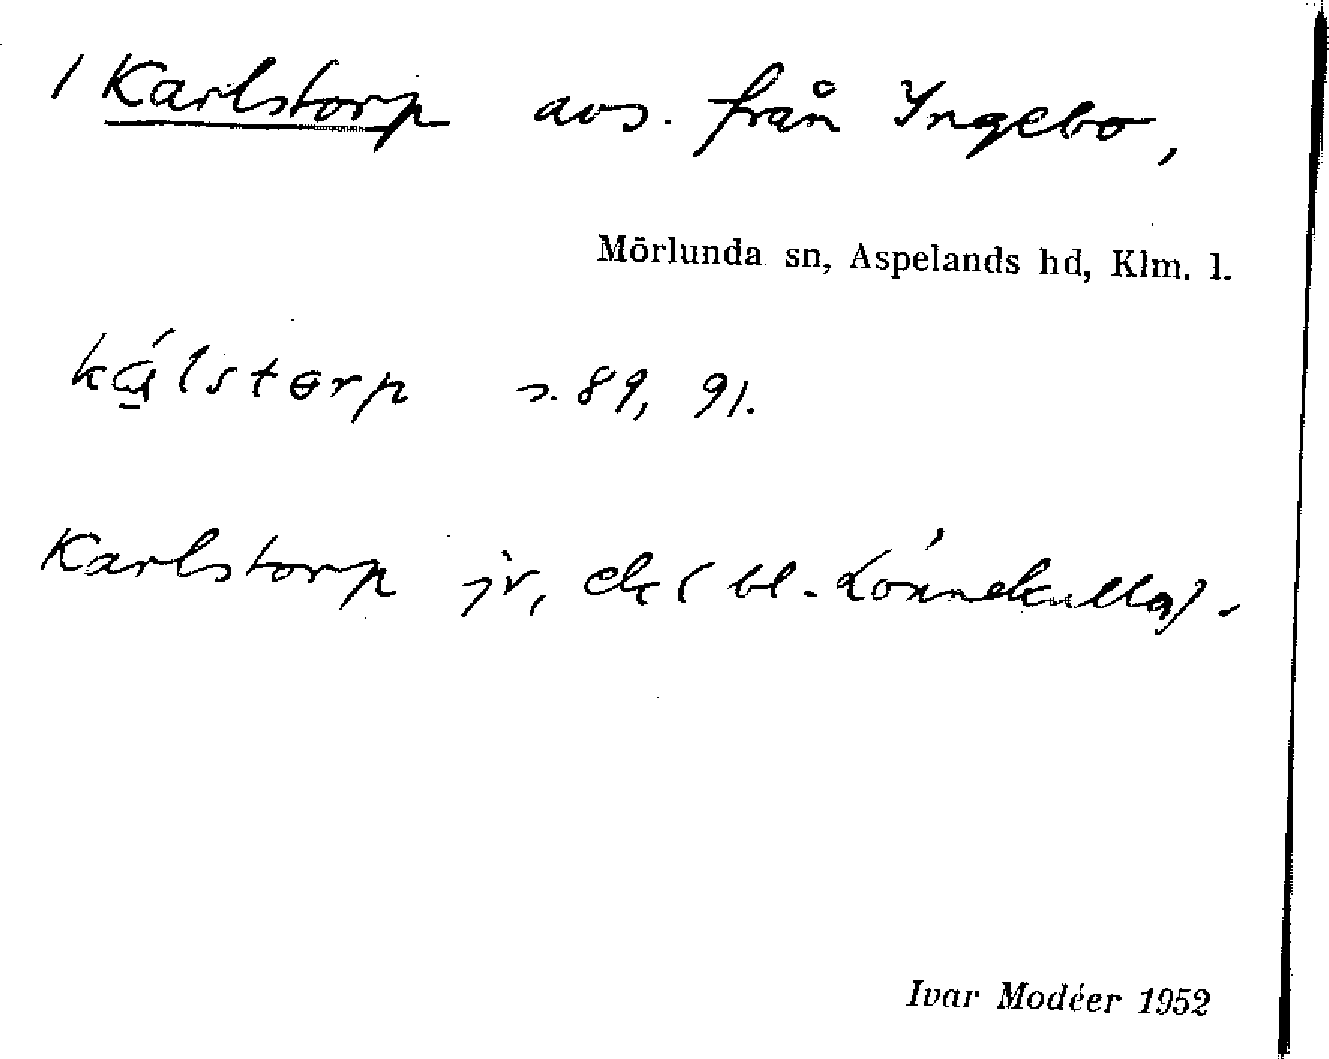 / Karlstorp avs. från Yngebo,
Mörlunda sn, Aspelands hd, Klm. l.
kálstorp s. 89, 91.
Karlstorp jr, ek (bl. Lönnekulla).
Ivar Modéer 1952